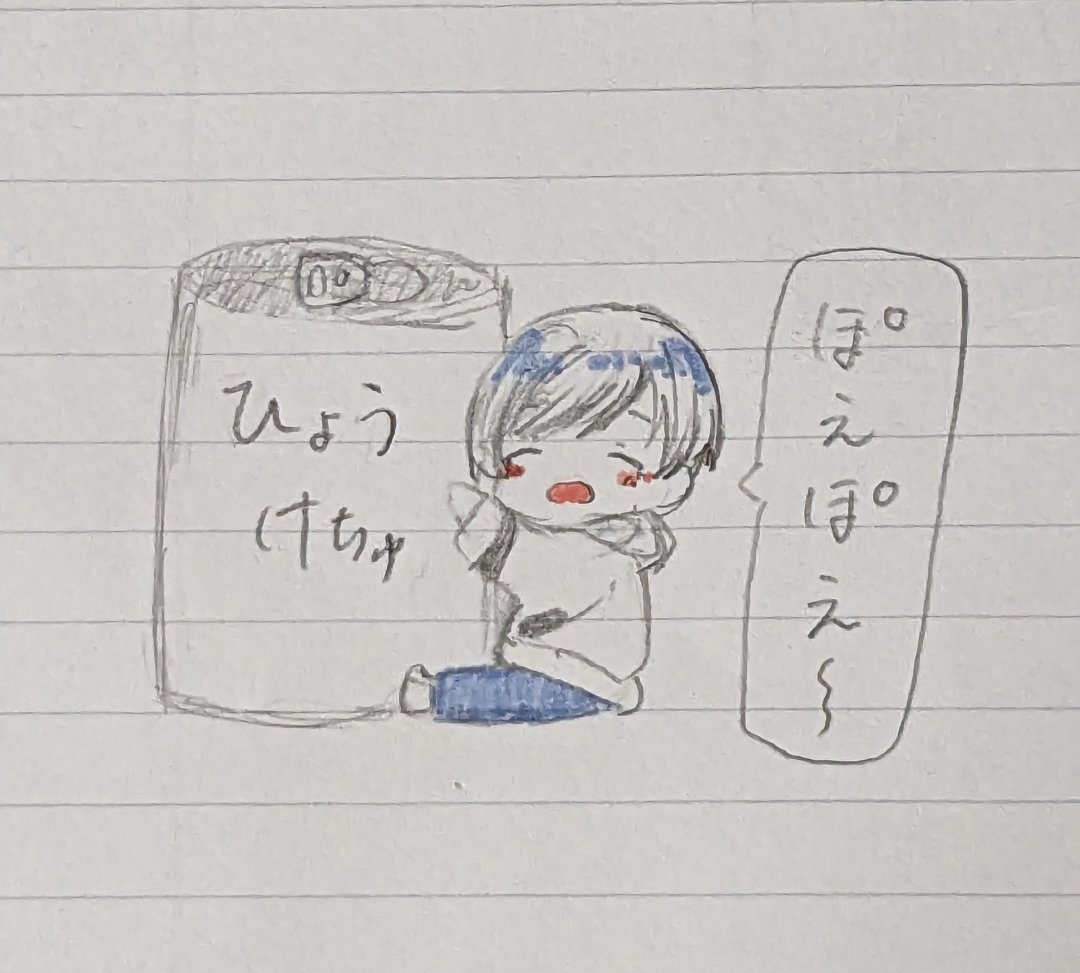 ひょう
けちゅ
ぽえぽえ～